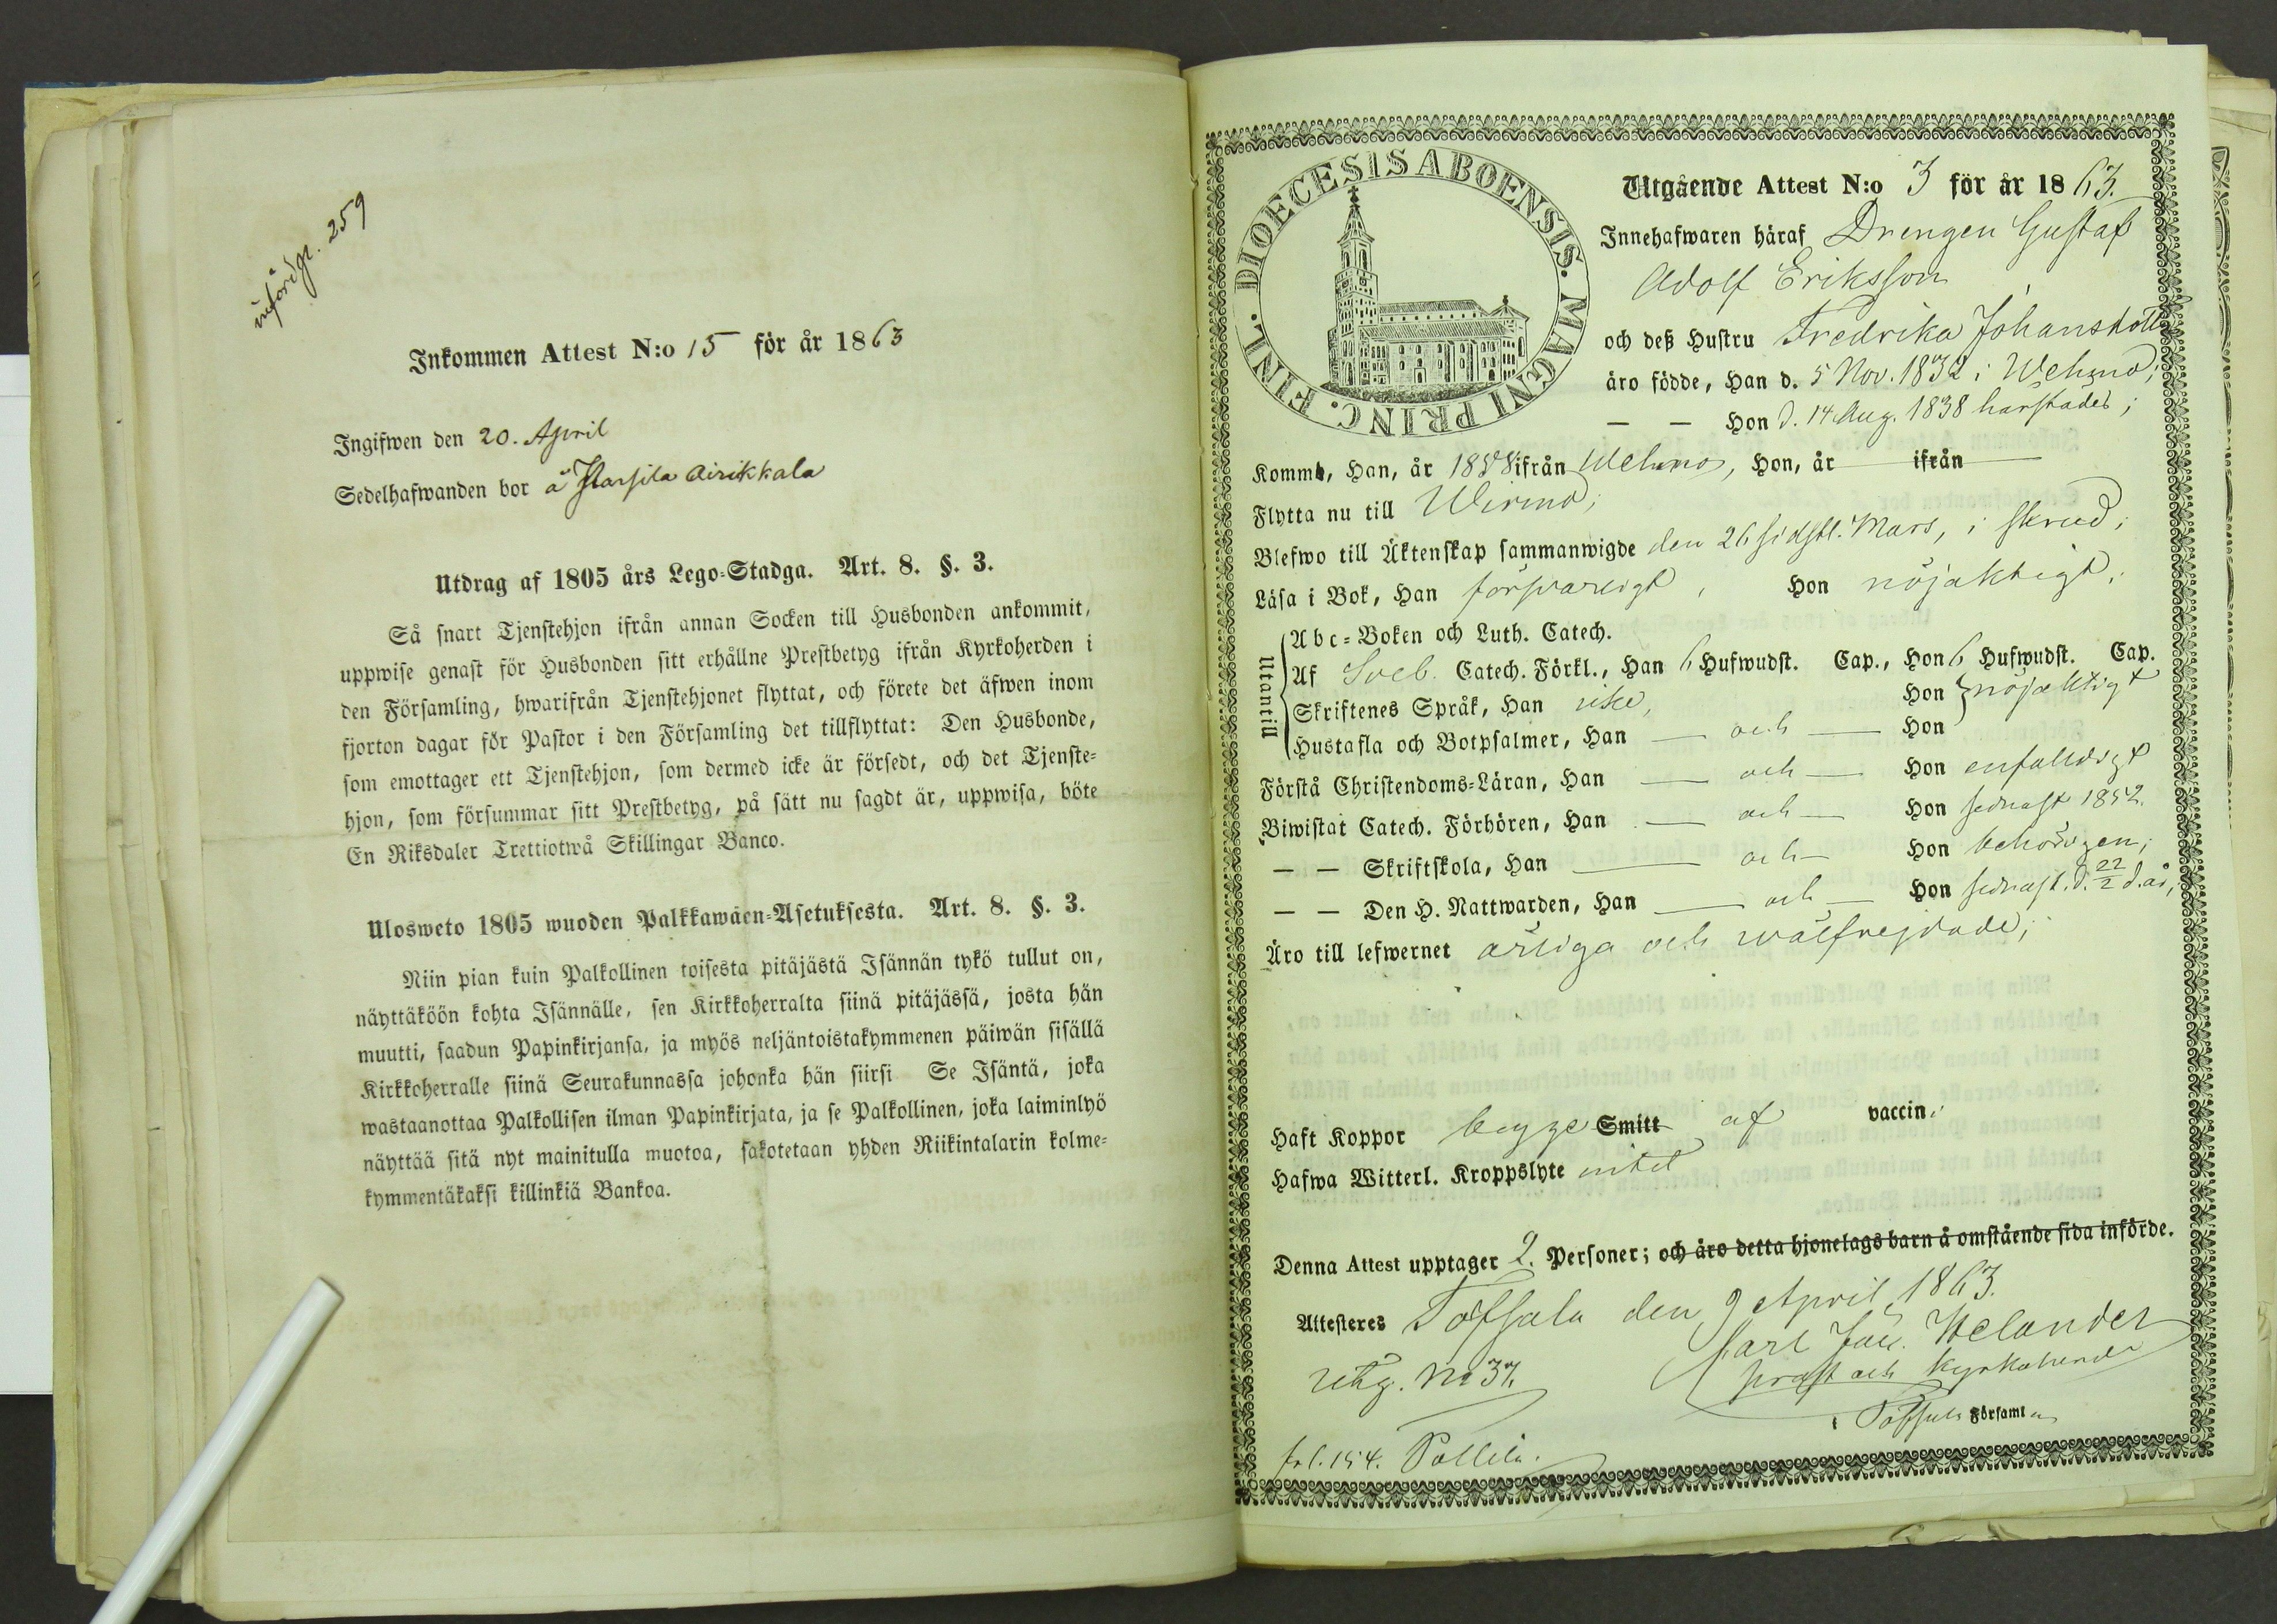 införd p. 259
Inkommen Attest N:o 15 för år 1863
Ingifwen den 20. April
Sedelhafwanden bor å Karsila Airikkala
Utdrag af 1805 års Lego-Stadga. Art. 8. §. 3.
Så snart Tjenstehjon ifrån annan Socken till Husbonden ankommit,
uppwise genast för Husbonden sitt erhållne Prestbetyg ifrån Kyrkoherden i
den Församling, hwarifrån Tjenstehjonet flyttat, och förete det äfwen inom
fjorton dagar för Pastor i den Församling det tillflyttat: Den Husbonde,
som emottager ett Tjenstehjon, som dermed icke är försedt, och det Tjenste-
hjon, som försummar sitt Prestbetyg, på sätt nu sagdt är, uppwisa, böte
En Riksdaler Trettiotwå Skillingar Banco.
Ulosweto 1805 wuoden Palkkawäen-Asetuksesta. Art. 8. §. 3.
Niin pian kuin Palkollinen toisesta pitäjästä Isännän tykö tullut on,
näyttäköön kohta Isännälle, sen Kirkkoherralta siinä pitäjässä, josta hän
muutti, saadun Papinkirjansa, ja myös neljäntoistakymmenen päiwän sisällä
Kirkkoherralle siinä Seurakunnassa johonka hän siirsi Se Isäntä, joka
wastaanottaa Palkollisen ilman Papinkirjata, ja se Palkollinen, joka laiminlyö
näyttää sitä nyt mainitulla muotoa, sakotetaan yhden Riikintalarin kolme-
kymmentäkaksi killinkiä Bankoa.
DIOECESIS ABOENSIS. MAGNI PRINC. FINL.
Utgående Attest N:o 3 för år 1863.
Innehafwaren häraf Drengen Gustaf
Adolf Eriksson
och deß Hustru Fredrika Johansdotter
äro födde, Han d. 5 Nov. 1832 i Wehmo;
— — Hon d. 14 Aug. 1838 härstädes;
Komm, Han, år 1858 ifrån Wehmo, Hon, år — ifrån —
Flytta nu till Wirmo;
Blefwo till Äktenskap sammanwigde den 26 sidstl. Mars, i skrud;
Läsa i Bok, Han försvarligt, Hon nöjaktigt,
Utantill
Abc-Boken och Luth. Catech.
Af Sveb. Catech. Förkl., Han 6 Hufwudst. Cap., Hon 6 Hufwudst. Cap.
Skriftenes Språk, Han icke, Hon nöjaktigt
Hustafla och Botpsalmer, Han — och — Hon
Förstå Christendoms-Läran, Han — och — Hon enfaldigt
Biwistat Catech. Förhören, Han — och — Hon sednast 1852.
— — Skriftskola, Han — och — Hon behörigen;
— — Den H. Nattwarden, Han — och — Hon sednast. d. 22/2 d. år,
Äro till lefwernet ärliga och wälfrejdade;
Haft Koppor begge Smitt af vaccin.
Hafwa Witterl. Kroppslyte intet
Denna Attest upptager 2. Personer; och äro detta hjonelags barn å omstående sida införde.
Attesteres Töfsala den 9 April 1863.
Carl Welander
utg. No 37. prost och kyrkoherde
i Töfsala Församl
fol. 154. Pollila.